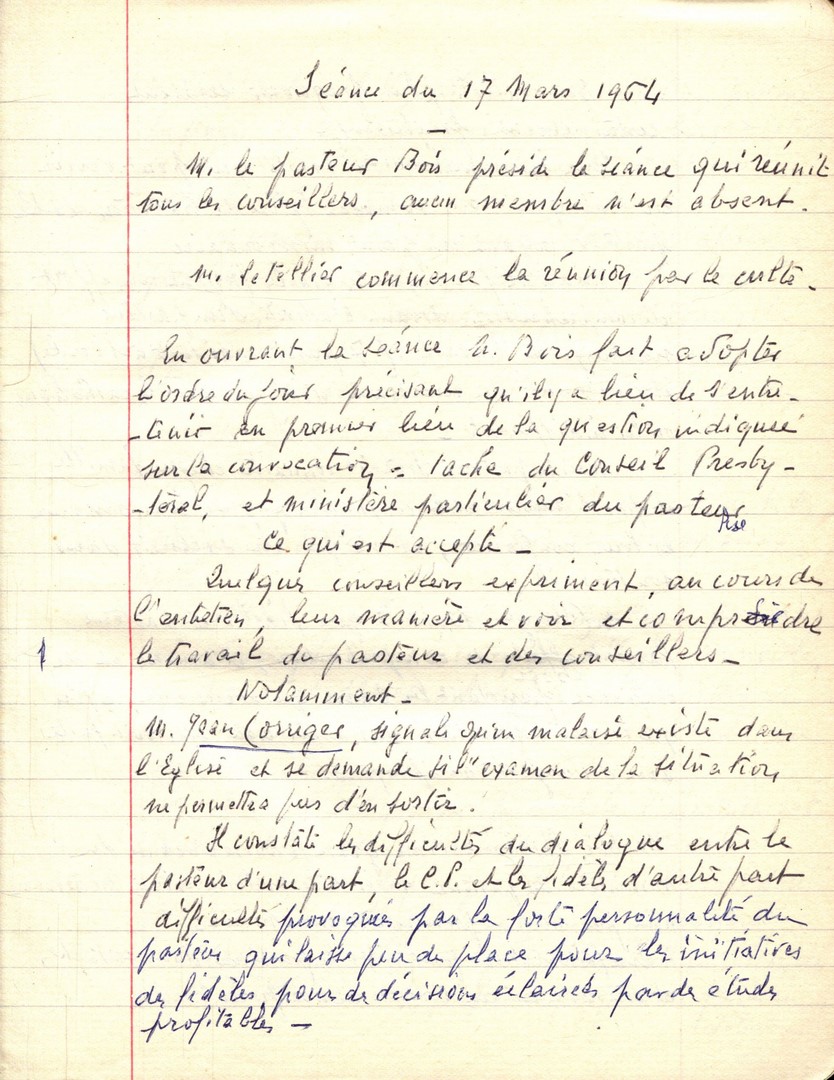 Séance du 17 Mars 1964
—
M. le pasteur Bois préside la séance qui réunit
tous les conseillers, aucun membre n'est absent.
M. Letellier commence la réunion par le culte.
En ouvrant la séance M. Bois fait adopter
l'ordre du jour précisant qu'il y a lieu de s'entre-
-tenir en premier lieu de la question indiquée
sur la convocation = tache du Conseil Presby-
-téral, et ministère particulier du pasteur
Ce qui est accepté —
Quelques conseillers expriment, au cours de
l'entretien, leur manière et voir et comprendre
le travail du pasteur et des conseillers —
Notamment —
M. Jean Corriger, signale qu'un malaise existe dans
l'Eglise et se demande si l'examen de la situation
ne permettra pas d'en sortir.
Il constate les difficultés du dialogue entre le
pasteur d'une part, le C.P. et les fidèles d'autre part
difficultés provoquées par la forte personnalité du
pasteur qui laisse peu de place pour les initiatives
des fidèles, pour de décisions éclairées par de études
profitables —